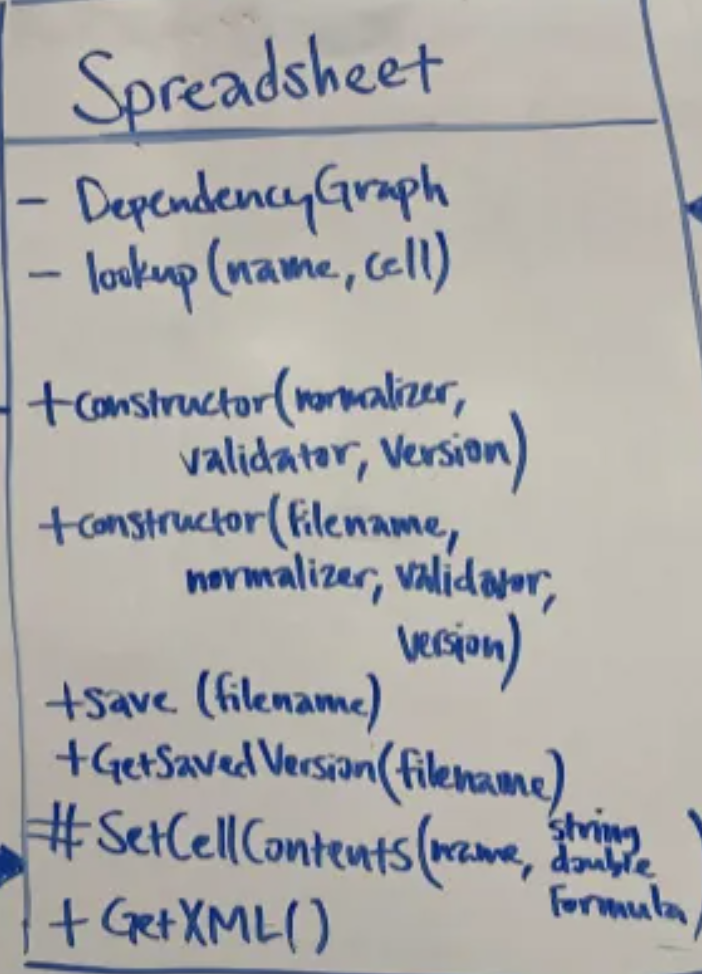 Spreadsheet
- DependencyGraph
- lookup(name, cell)
+constructor(normalizer,
validator, Version)
+constructor(filename,
normalizer, validator,
version)
+save (filename)
+GetSavedVersion(filename)
#SetCellContents(name, string
double
Formula)
+ GetXML()